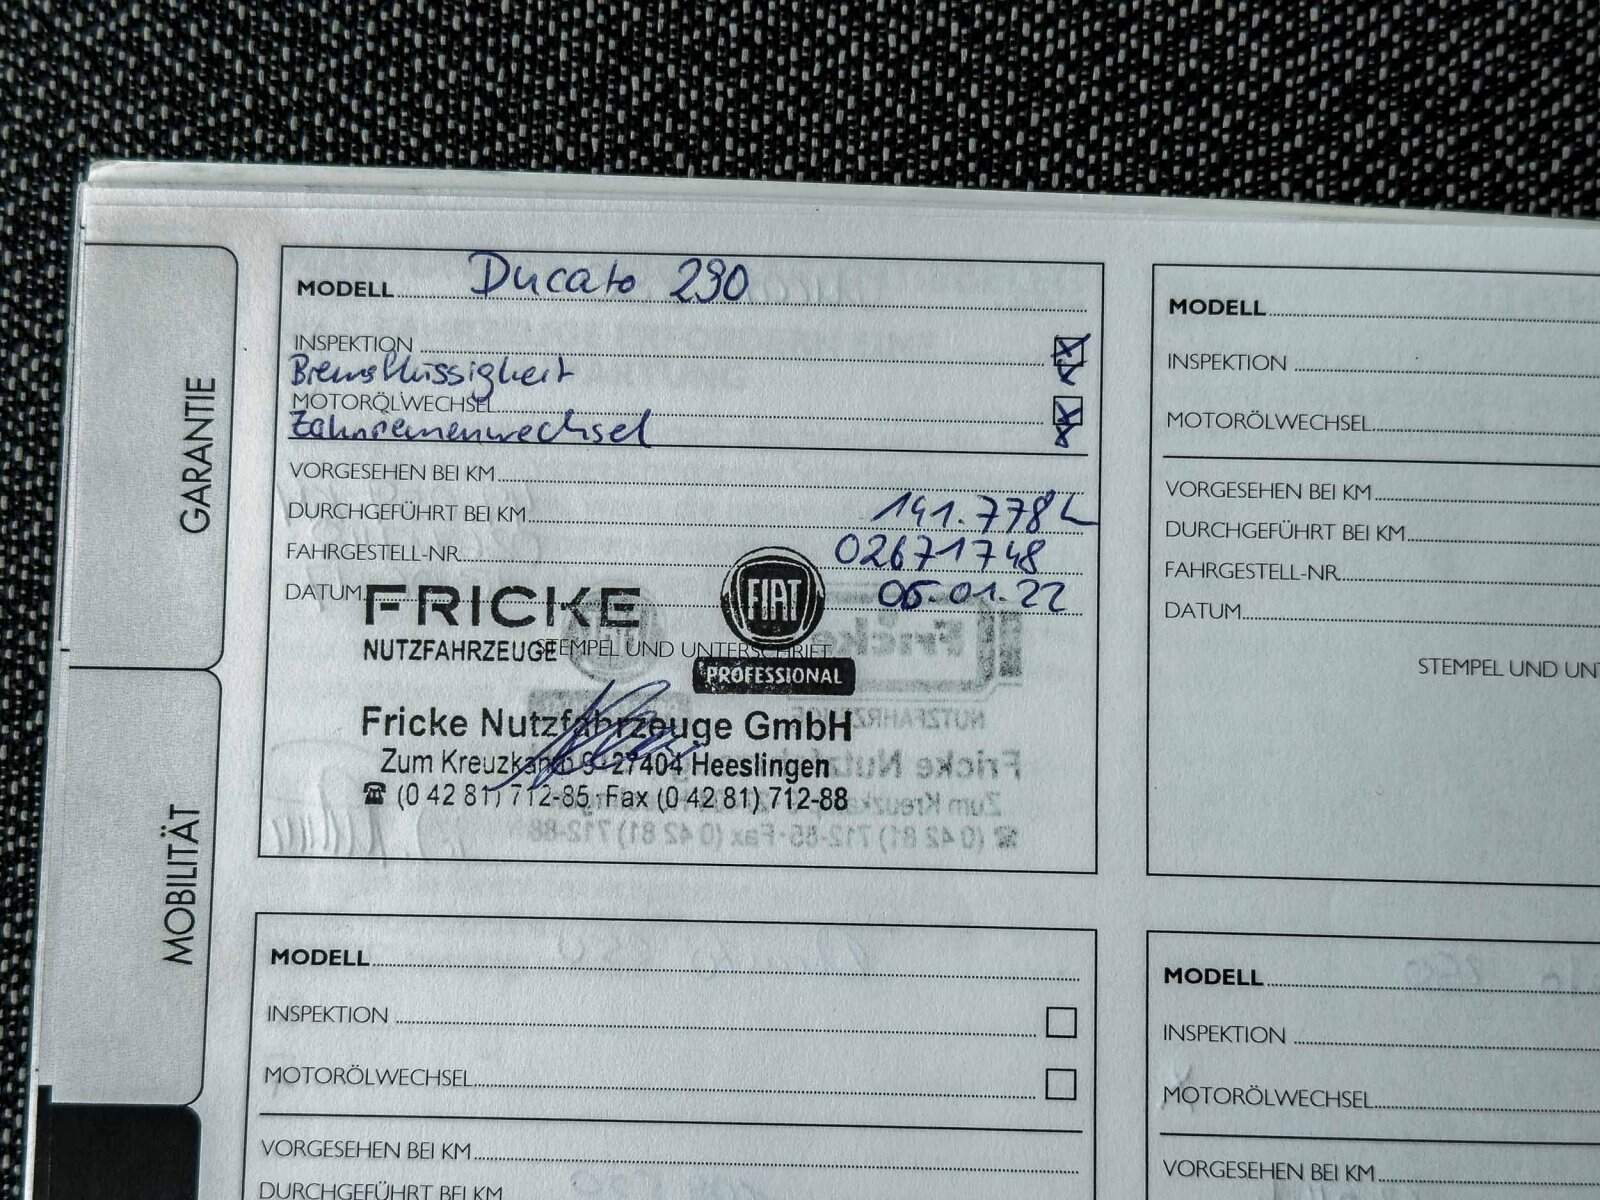 GARANTIE
MOBILITÄT
MODELL Ducato 290
INSPEKTION
Bremsflüssigkeit
MOTORÖLWECHSEL
Zahnriemenwechsel
VORGESEHEN BEI KM
DURCHGEFÜHRT BEI KM 141.778
FAHRGESTELL-NR. 02671748
DATUM 05.01.22
FRICKE
NUTZFAHRZEUGE
FIAT
PROFESSIONAL
STEMPEL UND UNTERSCHRIFT
Fricke Nutzfahrzeuge GmbH
Zum Kreuzkamp 9 · 27404 Heeslingen
☎ (0 42 81) 712-85 · Fax (0 42 81) 712-88
MODELL
INSPEKTION
MOTORÖLWECHSEL
VORGESEHEN BEI KM
DURCHGEFÜHRT BEI KM
FAHRGESTELL-NR.
DATUM
STEMPEL UND UNT
MODELL
INSPEKTION
MOTORÖLWECHSEL
VORGESEHEN BEI KM
DURCHGEFÜHRT BEI KM
MODELL
INSPEKTION
MOTORÖLWECHSEL
VORGESEHEN BEI KM